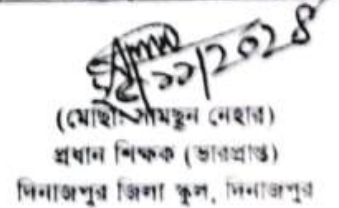 ১১/২০২৪
(মোছাঃ শামছুন নেহার)
প্রধান শিক্ষক (ভারপ্রাপ্ত)
দিনাজপুর জিলা স্কুল, দিনাজপুর